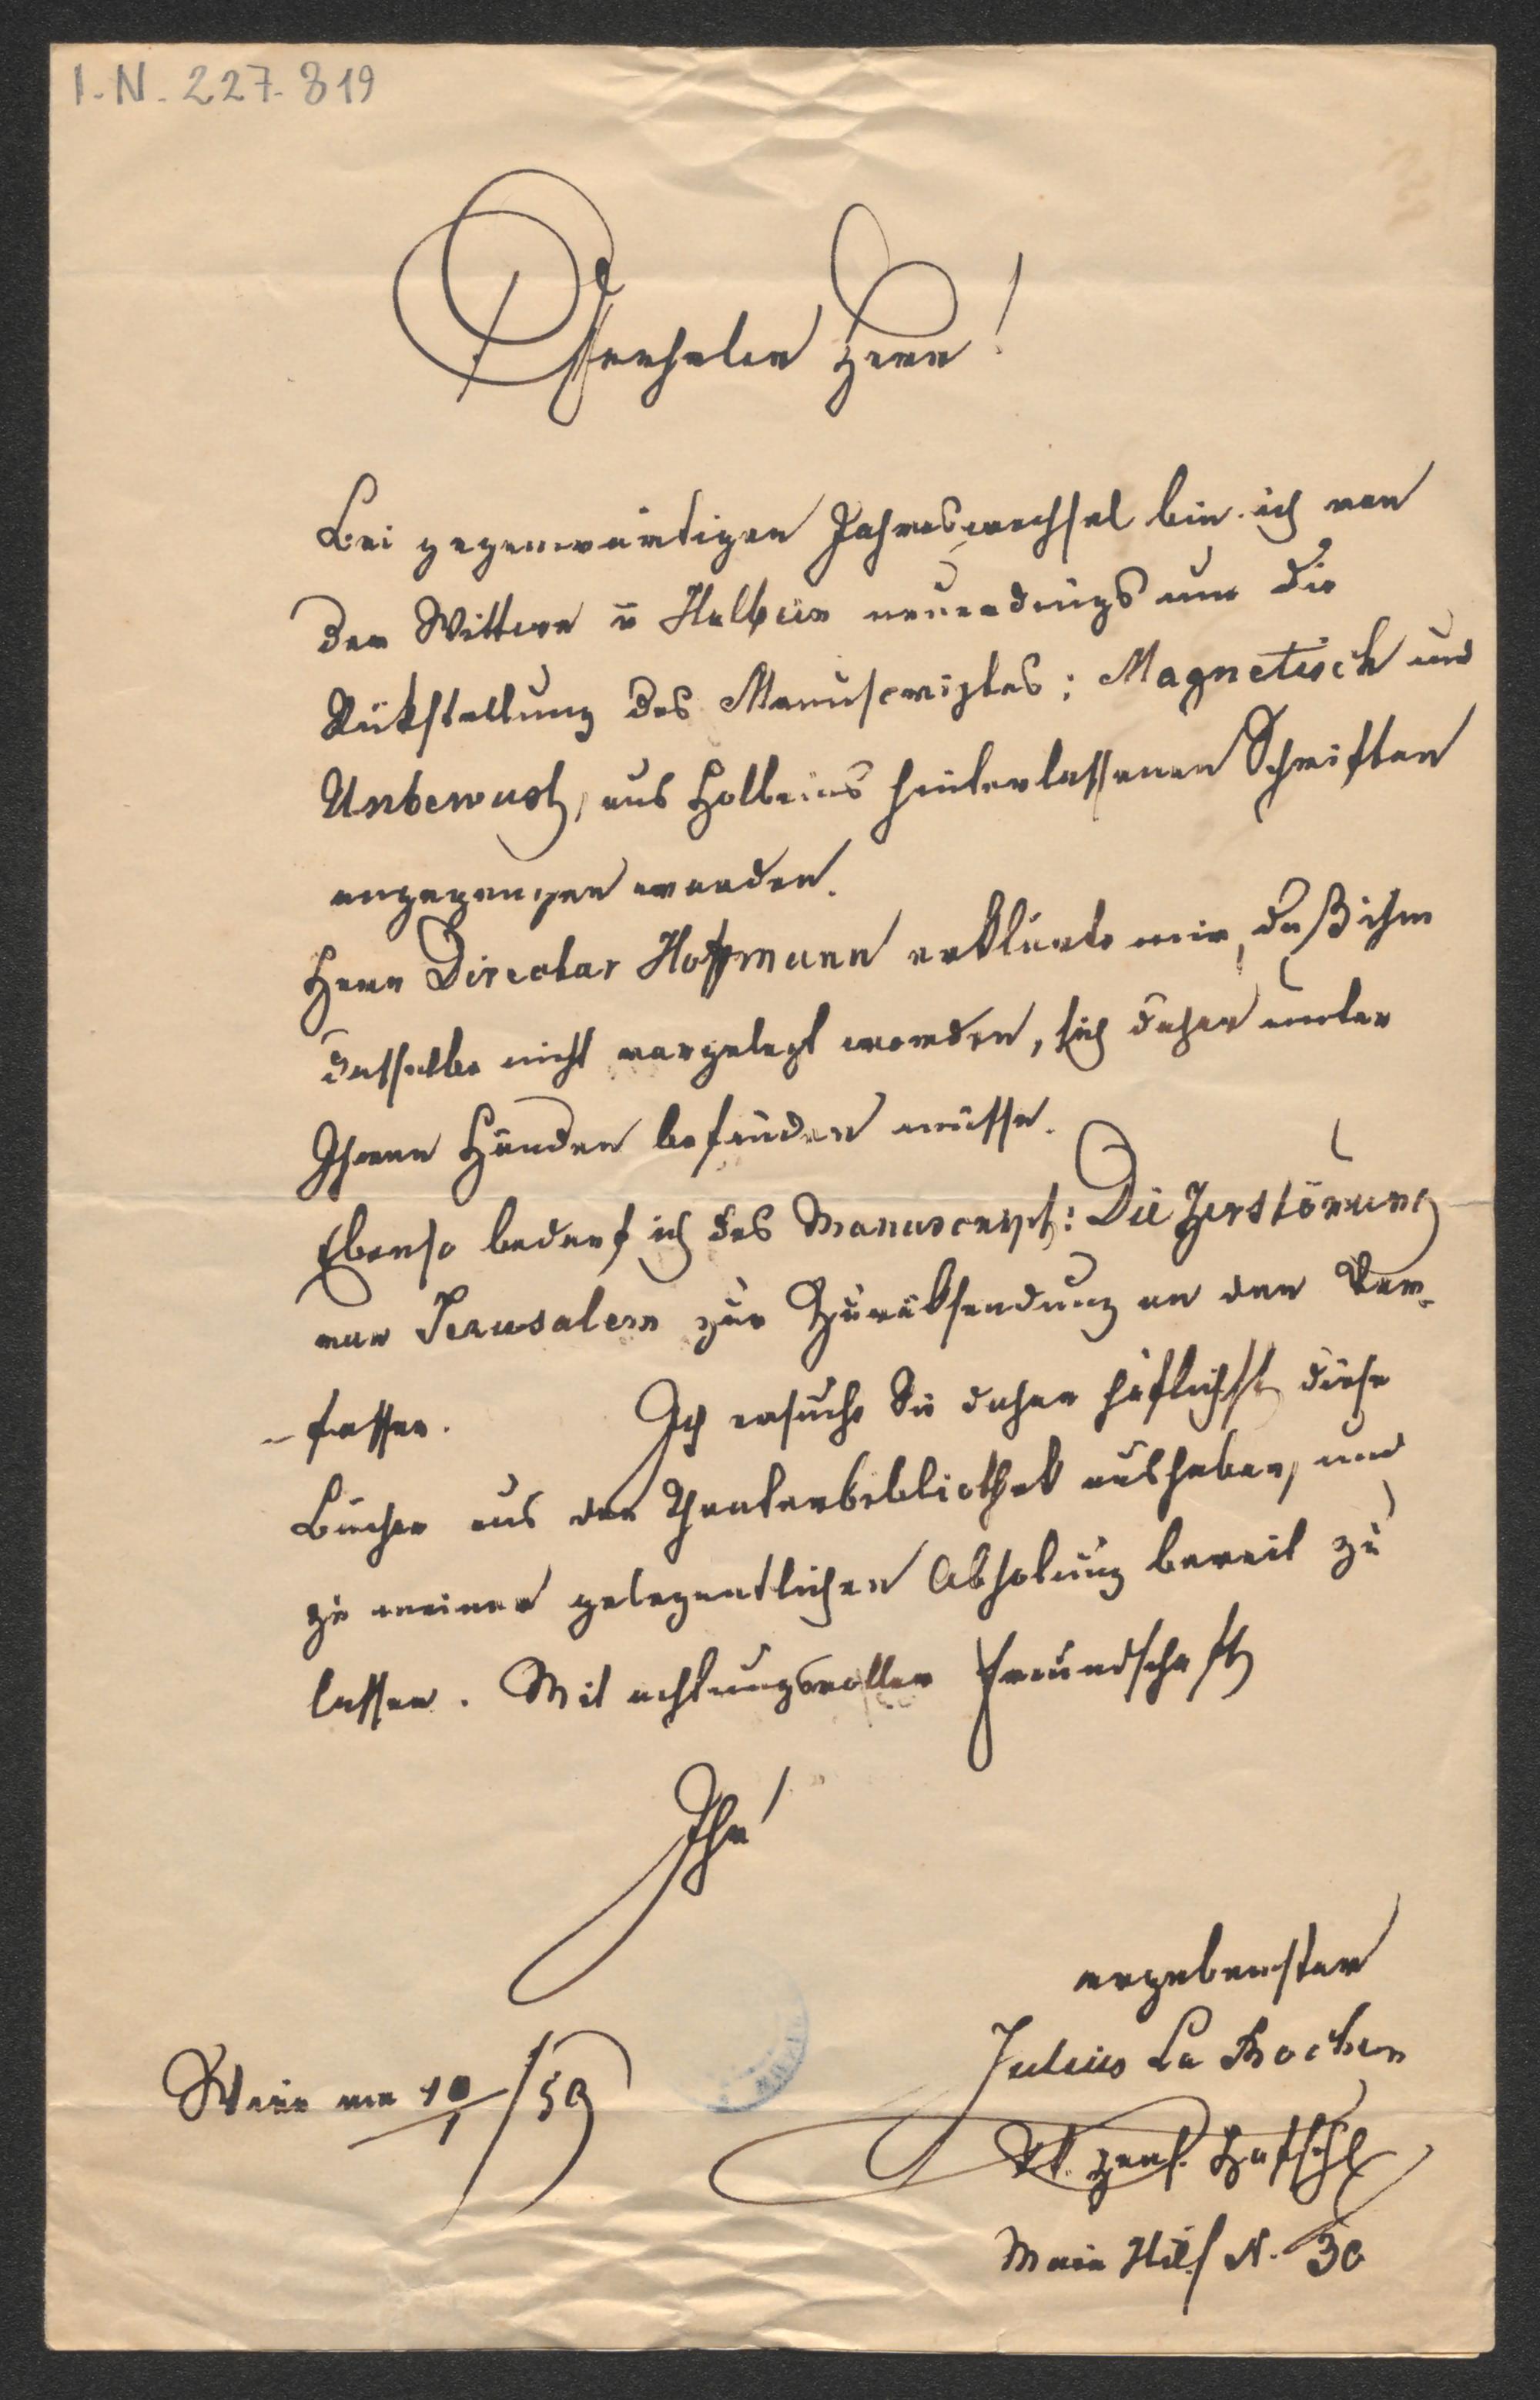 I. N. 227.819
Verehrter Herr!
Bei gegenwärtigen Jahreswechsel bin ich von
der Wittwe v Holbein neuerdings um die
Rükstellung des Manuscriptes: Magnetisch und
Unbewust, aus Holbeins hinterlassenen Schriften
angegangen worden.
Herr Director Hoffmann erklärte mir, daß ihm
dasselbe nicht vorgelegt worden, sich daher unter
Ihren Händen befinden müsse.
Ebenso bedarf ich das Manuscript: Die Zerstörung
von Jerusalem zur Zurüksendung an den Ver-
-fasser. Ich ersuche Sie daher höflichst diese
Bücher aus der Theaterbibliothek ausheben, und
zu meiner gelegentlichen Abholung bereit zu
lassen. Mit achtungsvoller Freundschaft
Ihr
ergebenster
Julius La Roche
Wien am 10/1 /59
kk. pens. Hofschſ
Maria Hilf N. 30